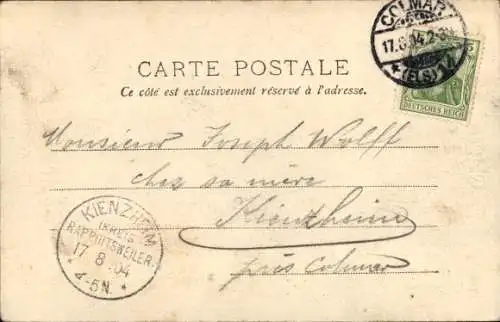 COLMAR
17.8.04.2-3N
* (ELS) *
5
DEUTSCHES REICH
CARTE POSTALE
Ce côté est exclusivement réservé à l'adresse.
Monsieur Joseph Wolff
chez sa mère
Kienzheim
près Colmar
KIENZHEIM
(KREIS
RAPPOLTSWEILER)
17 8 04
* 4-5N. *